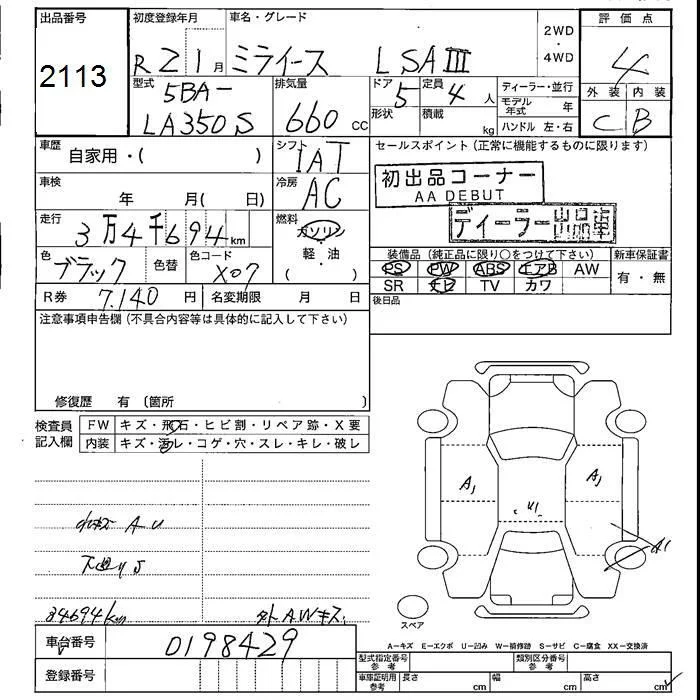 出品番号
2113
初度登録年月
R 2 1 月
車名・グレード
ミライース LSAⅢ
2WD
・
4WD
評価点
4
外装 内装
C B
型式
5BA-
LA350S
排気量
660 CC
ドア 定員
5 4 人
形状 積載
kg
ディーラー・並行
モデル年式 年
ハンドル 左・右
車歴
自家用・( )
シフト
IAT
車検
年 月( 日)
冷房
AC
走行
3万4千694 km
燃料
ガソリン
・
軽・油
( )
色
ブラック
色替
色コード
X07
R券 7.140 円
名変期限 月 日
セールスポイント(正常に機能するものに限ります)
初出品コーナー
AA DEBUT
ディーラー出品車
装備品(純正品に限り○をつけて下さい)
新車保証書
PS PW ABS エアB AW
SR ナビ TV カワ
有・無
後日品
注意事項申告欄(不具合内容等は具体的に記入して下さい)
修復歴 有 〔箇所 〕
検査員
記入欄
FW キズ・飛石・ヒビ割・リペア跡・X要
内装 キズ・汚レ・コゲ・穴・スレ・キレ・破レ
小キズ A U
下廻りS
34694km
外AWキズ
A1
A1
U1
A1
スペア
A―キズ E―エクボ U―凹み W―補修跡 S―サビ C―腐食 XX―交換済
車台番号
0198429
登録番号
型式指定番号
参考
類別区分番号
参考
車庫証明用
参考
長さ cm
幅 cm
高さ cm